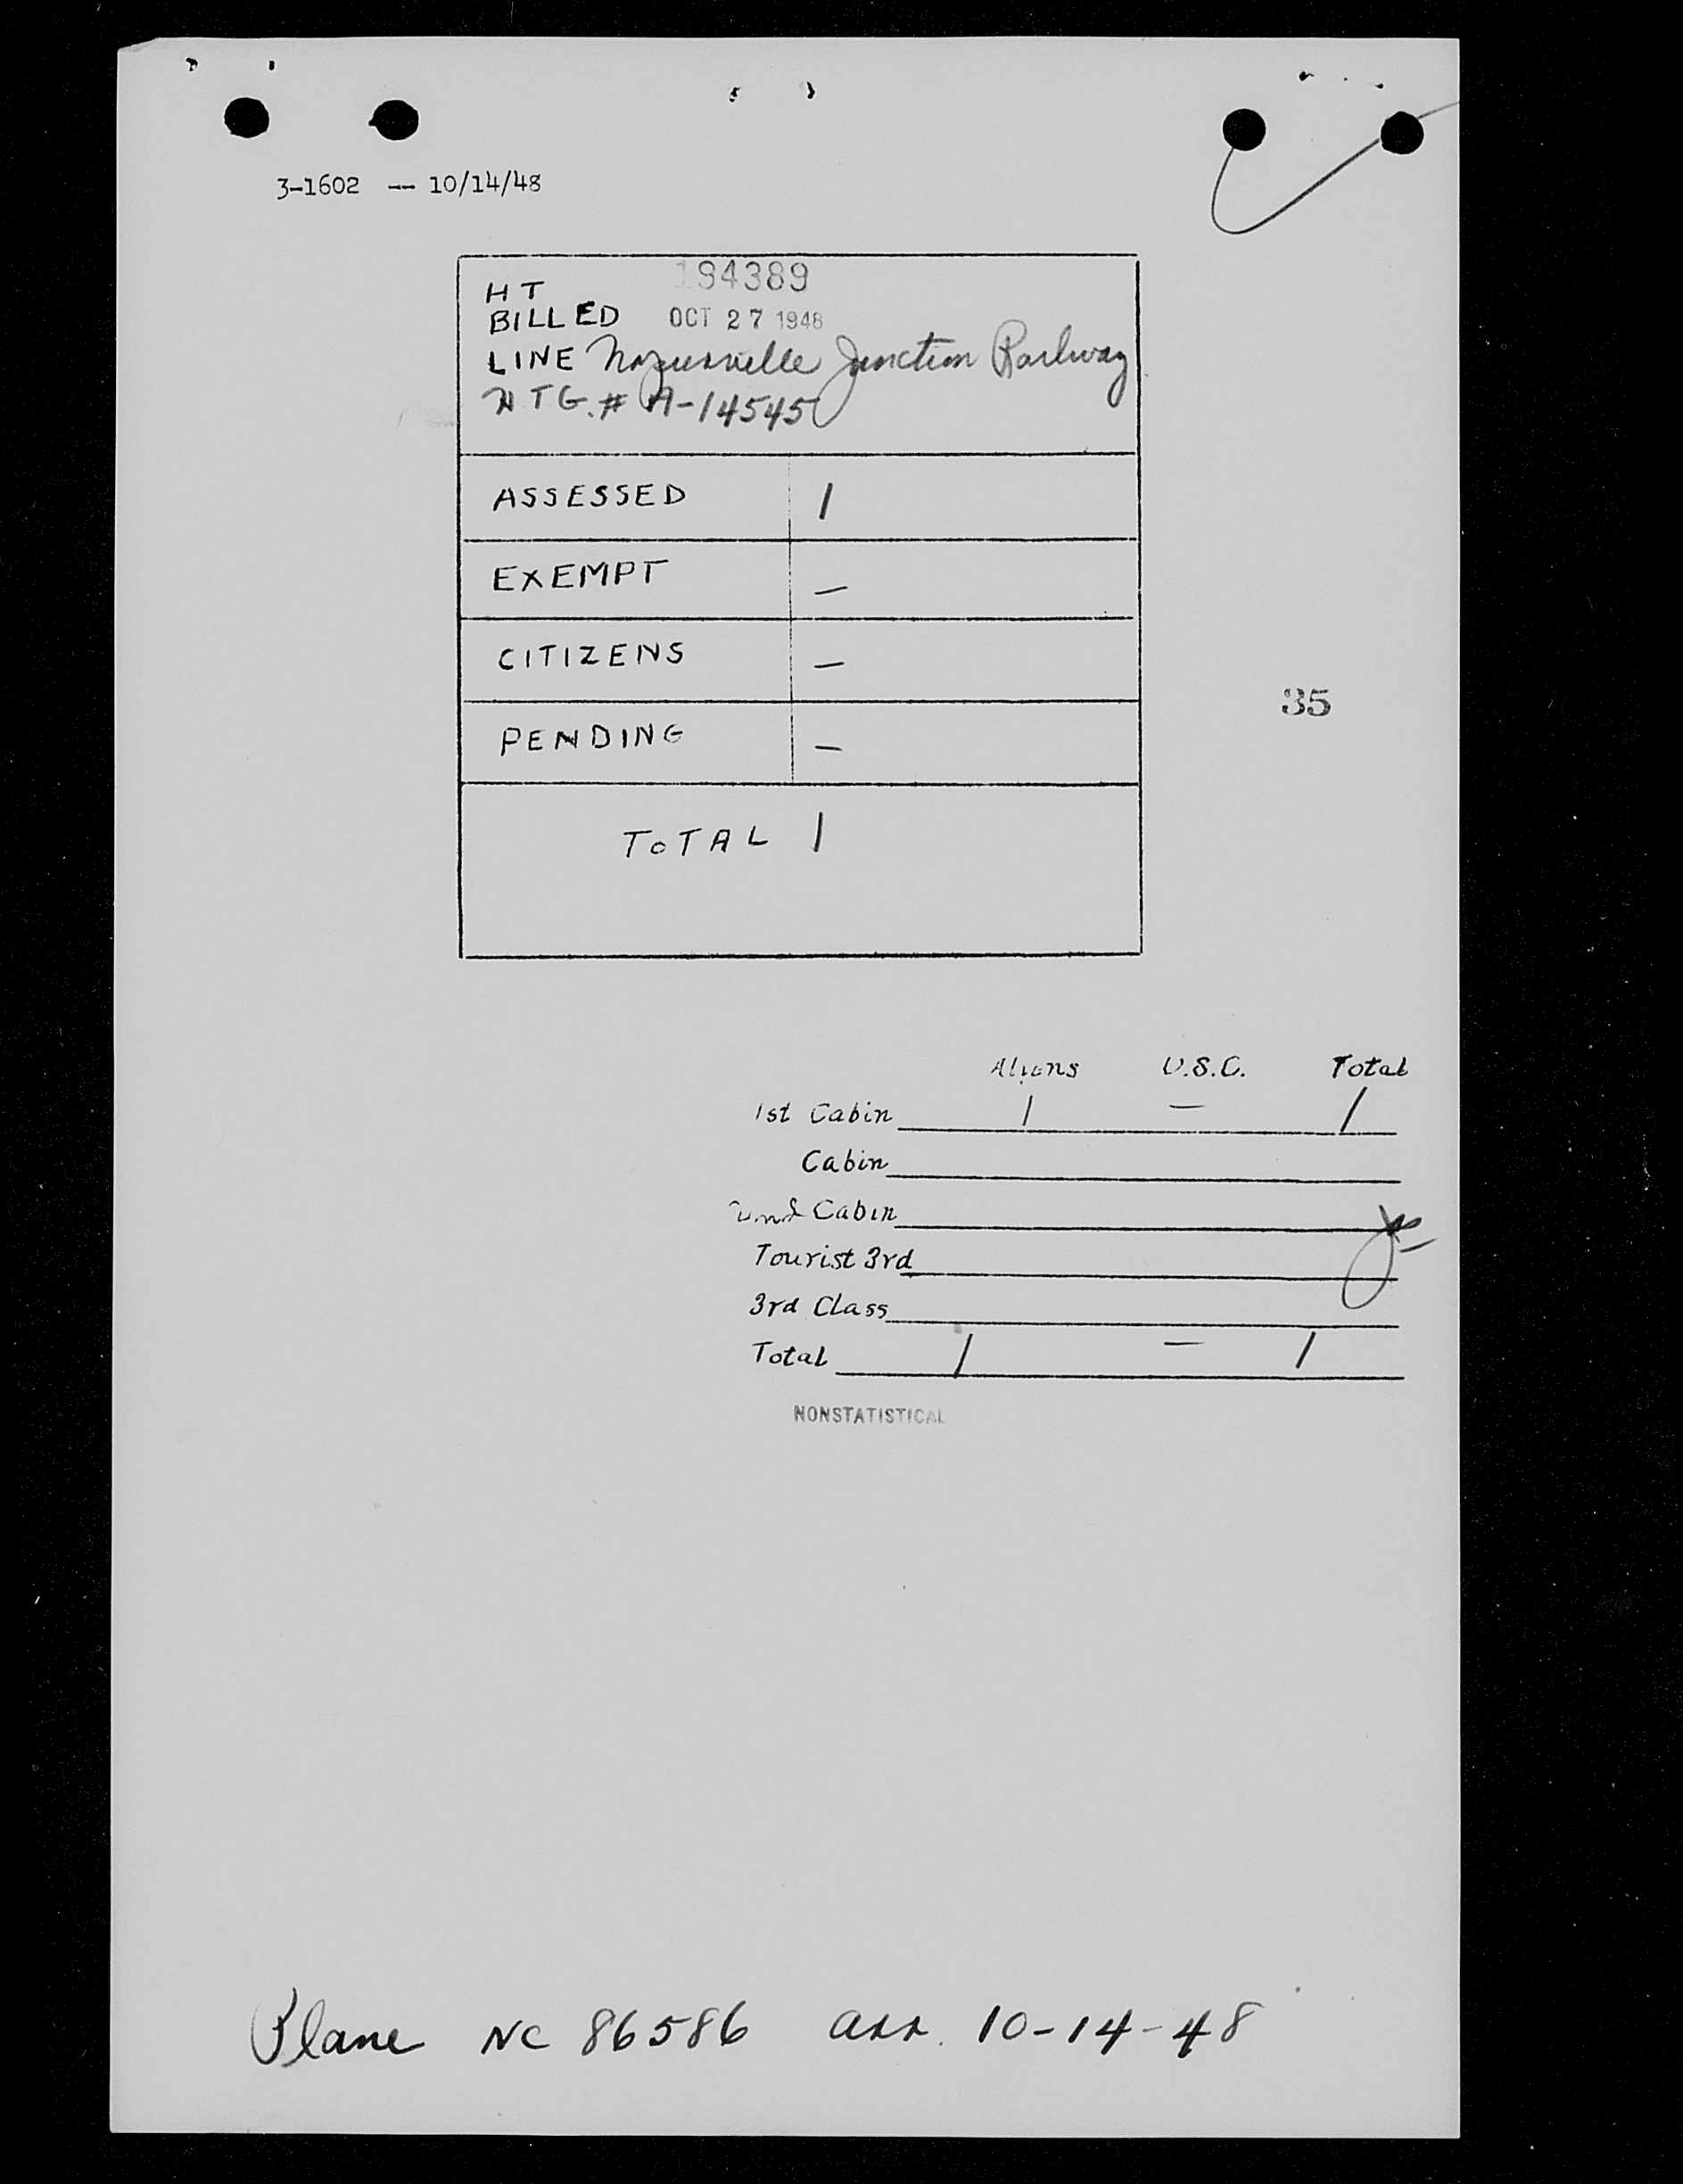 3-1602 -- 10/14/48
194389
HT
BILLED OCT 27 1948
LINE Napierville Junction Railway
HTG. # A-14545
ASSESSED 1
EXEMPT —
CITIZENS —
PENDING —
35
TOTAL 1
Aliens U.S.C. Total
1st Cabin 1 — 1
Cabin
Cabin
Tourist 3rd
3rd Class
Total 1 — 1
NONSTATISTICAL
Plane NC 86586 arr. 10-14-48